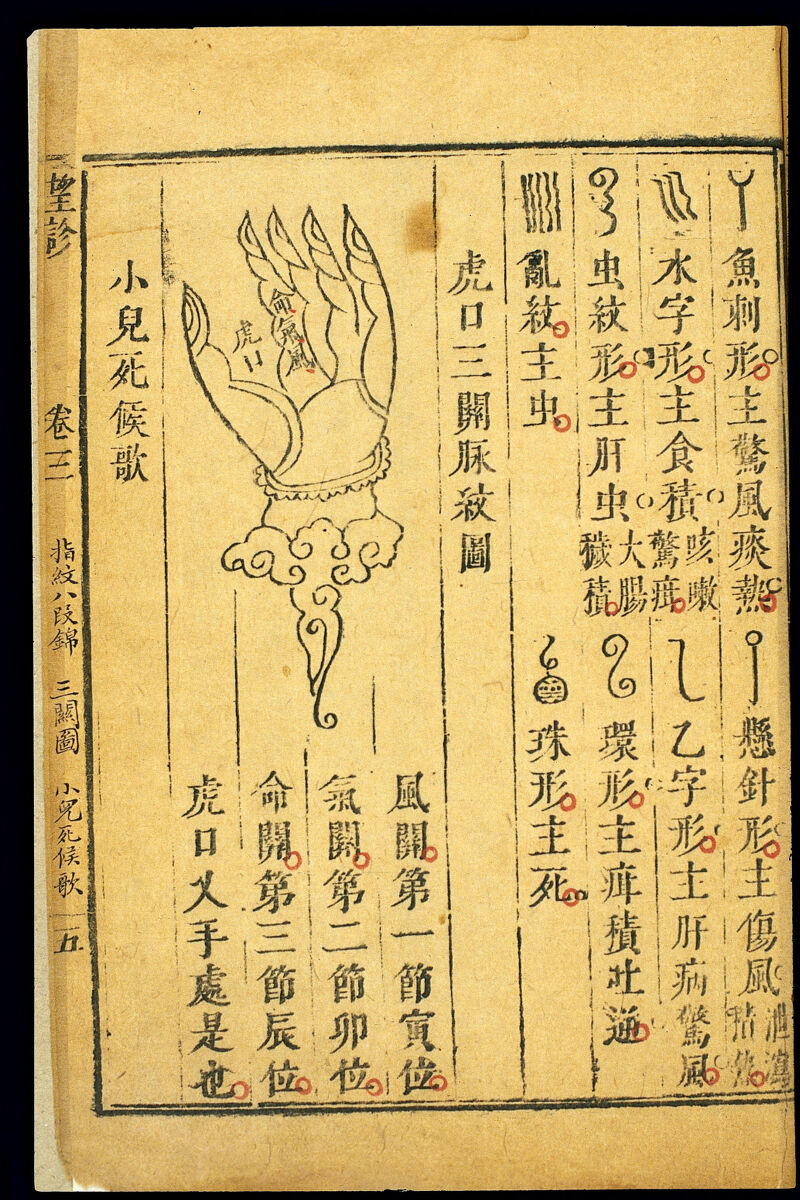 魚刺形主驚風痰熱
懸針形主傷風泄瀉積熱
水字形主食積咳嗽驚疳
乙字形主肝病驚風
虫紋形主肝虫大腸穢積
環形主疳積吐逆
亂紋主虫
珠形主死
虎口三關脉紋圖
命氣風
虎口
風關第一節寅位
氣關第二節卯位
命關第三節辰位
虎口乂手處是也
小兒死候歌
望診
卷三
指紋八段錦
三關圖
小兒死候歌
五